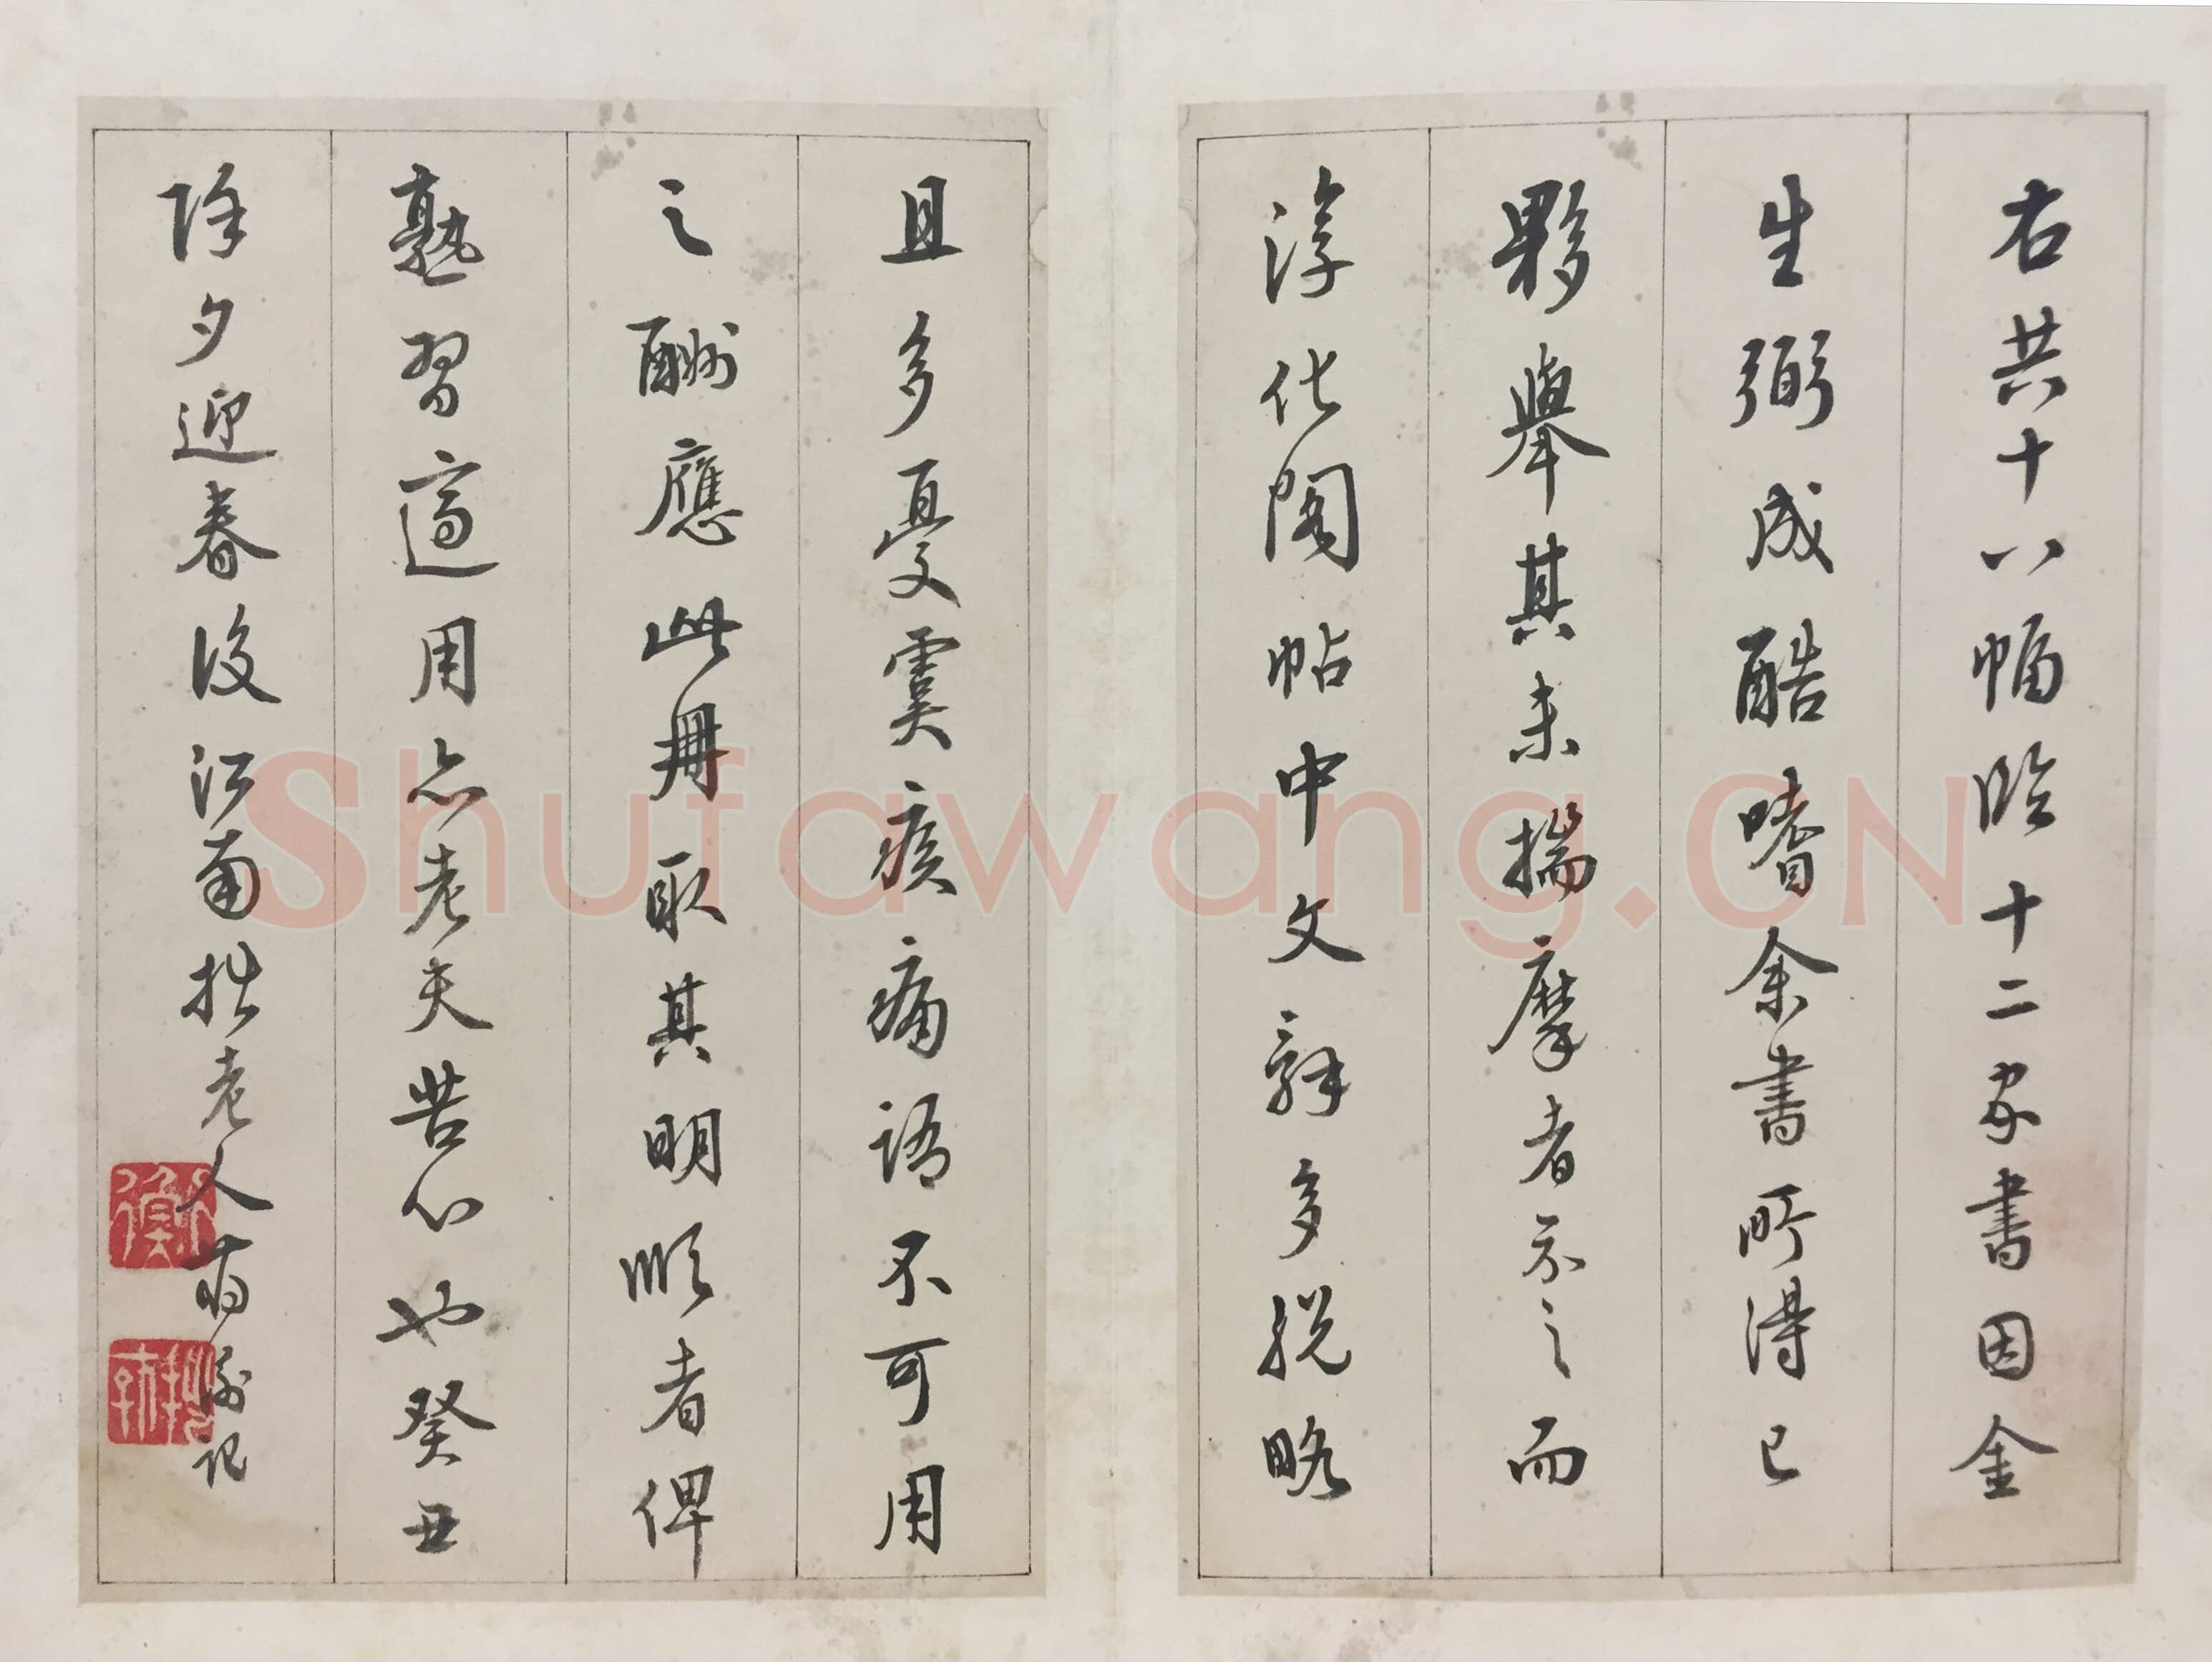 右共十八幅臨十二家書因金
生弼成酷嗜余書所得已
夥舉其未揣摩者示之而
淳化閣帖中文辭多脫略
且多憂虞疾痛語不可用
之酬應此册取其明順者俾
熟習適用亦老夫苦心也癸丑
除夕迎春後江南拙老人蔣衡記
Shufawang.CN